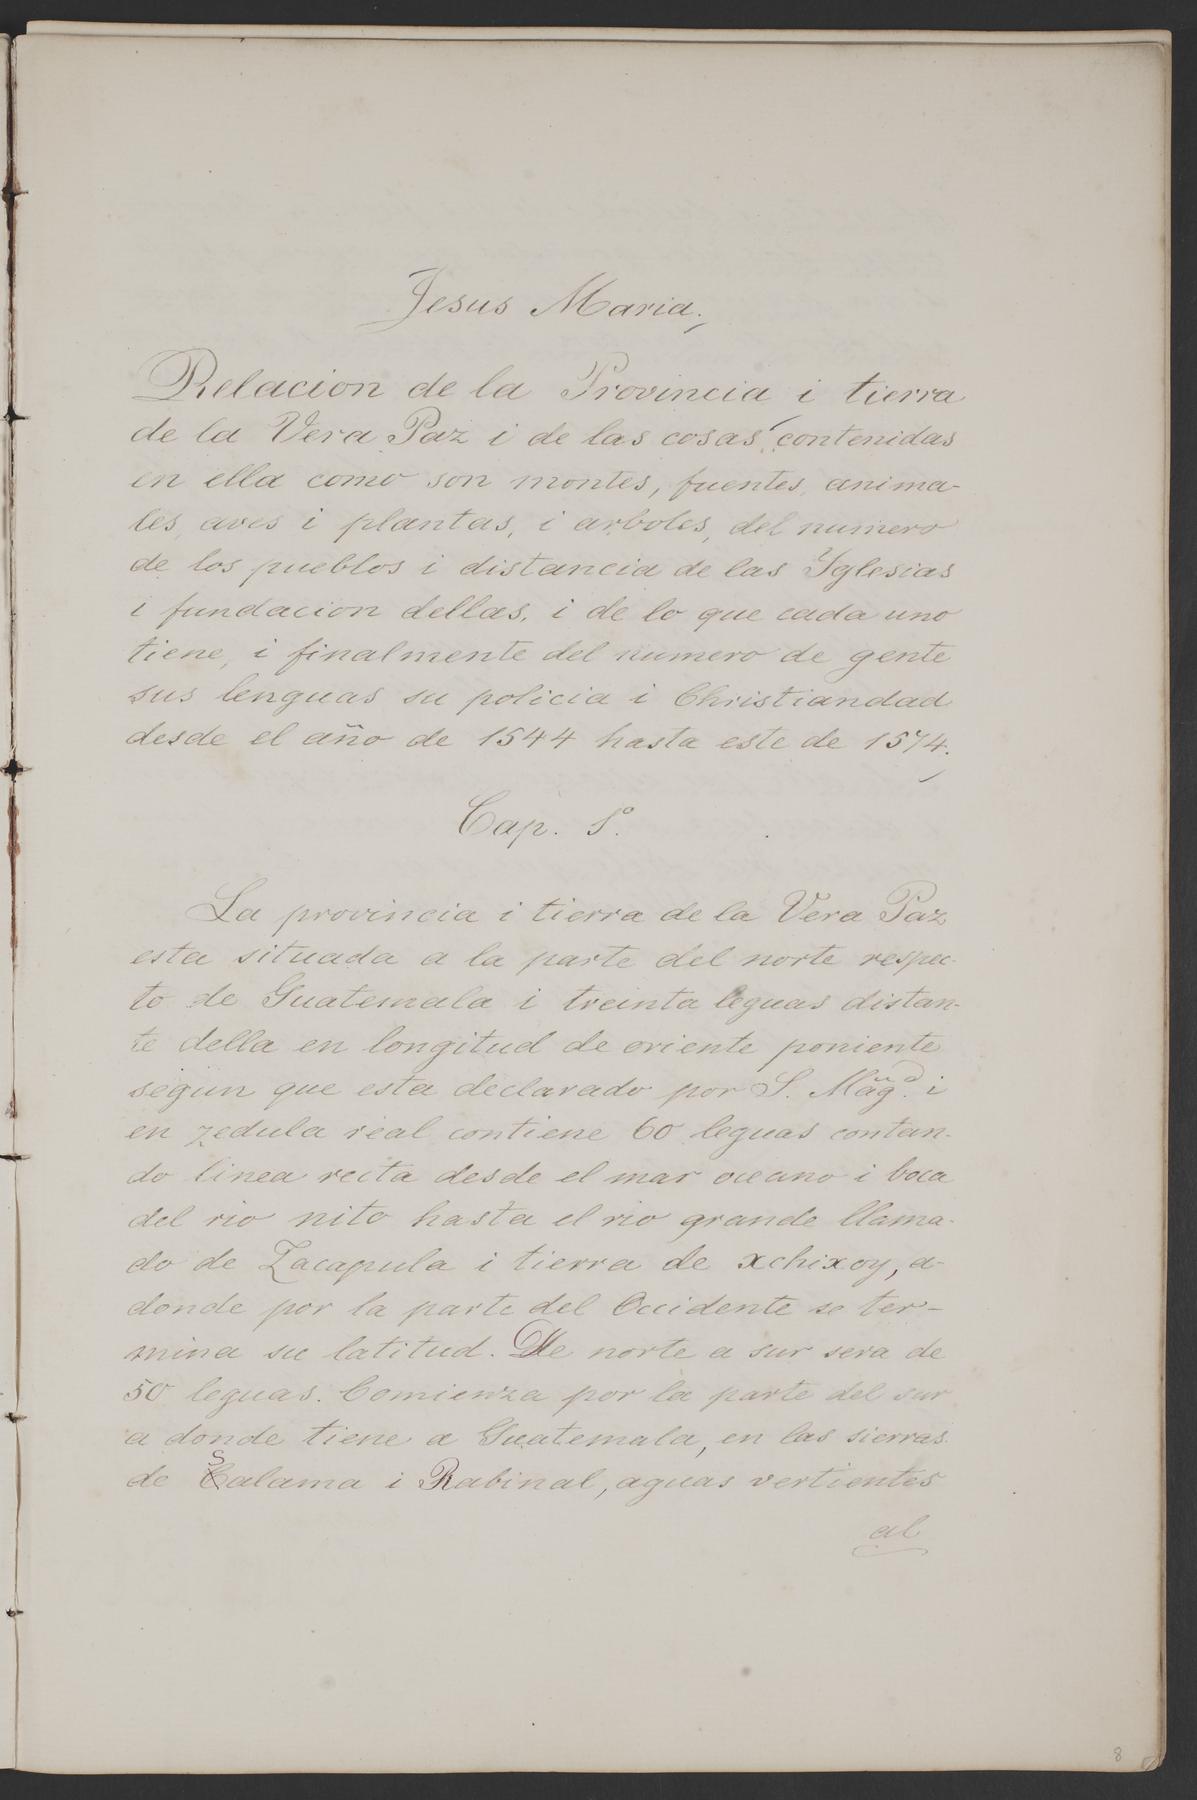 Jesus Maria.
Relacion de la Provincia i tierra
de la Vera Paz i de las cosas contenidas
en ella como son montes, fuentes, anima-
les, aves i plantas, i arboles, del numero
de los pueblos i distancia de las Yglesias
i fundacion dellas, i de lo que cada uno
tiene, i finalmente del numero de gente
sus lenguas su policia i Christiandad
desde el año de 1544 hasta este de 1574.
Cap. 1º.
La provincia i tierra de la Vera Paz
esta situada a la parte del norte respec-
to de Guatemala i treinta leguas distan-
te della en longitud de oriente poniente
segun que esta declarado por S. Mag.d i
en zedula real contiene 60 leguas contan-
do linea recta desde el mar oceano i boca
del rio nito hasta el rio grande llama-
do de Zacapula i tierra de xchixoy, a-
donde por la parte del Occidente se ter-
mina su latitud. De norte a sur sera de
50 leguas. Comienza por la parte del sur
a donde tiene a Guatemala, en las sierras
de Salama i Rabinal, aguas vertientes
al
8